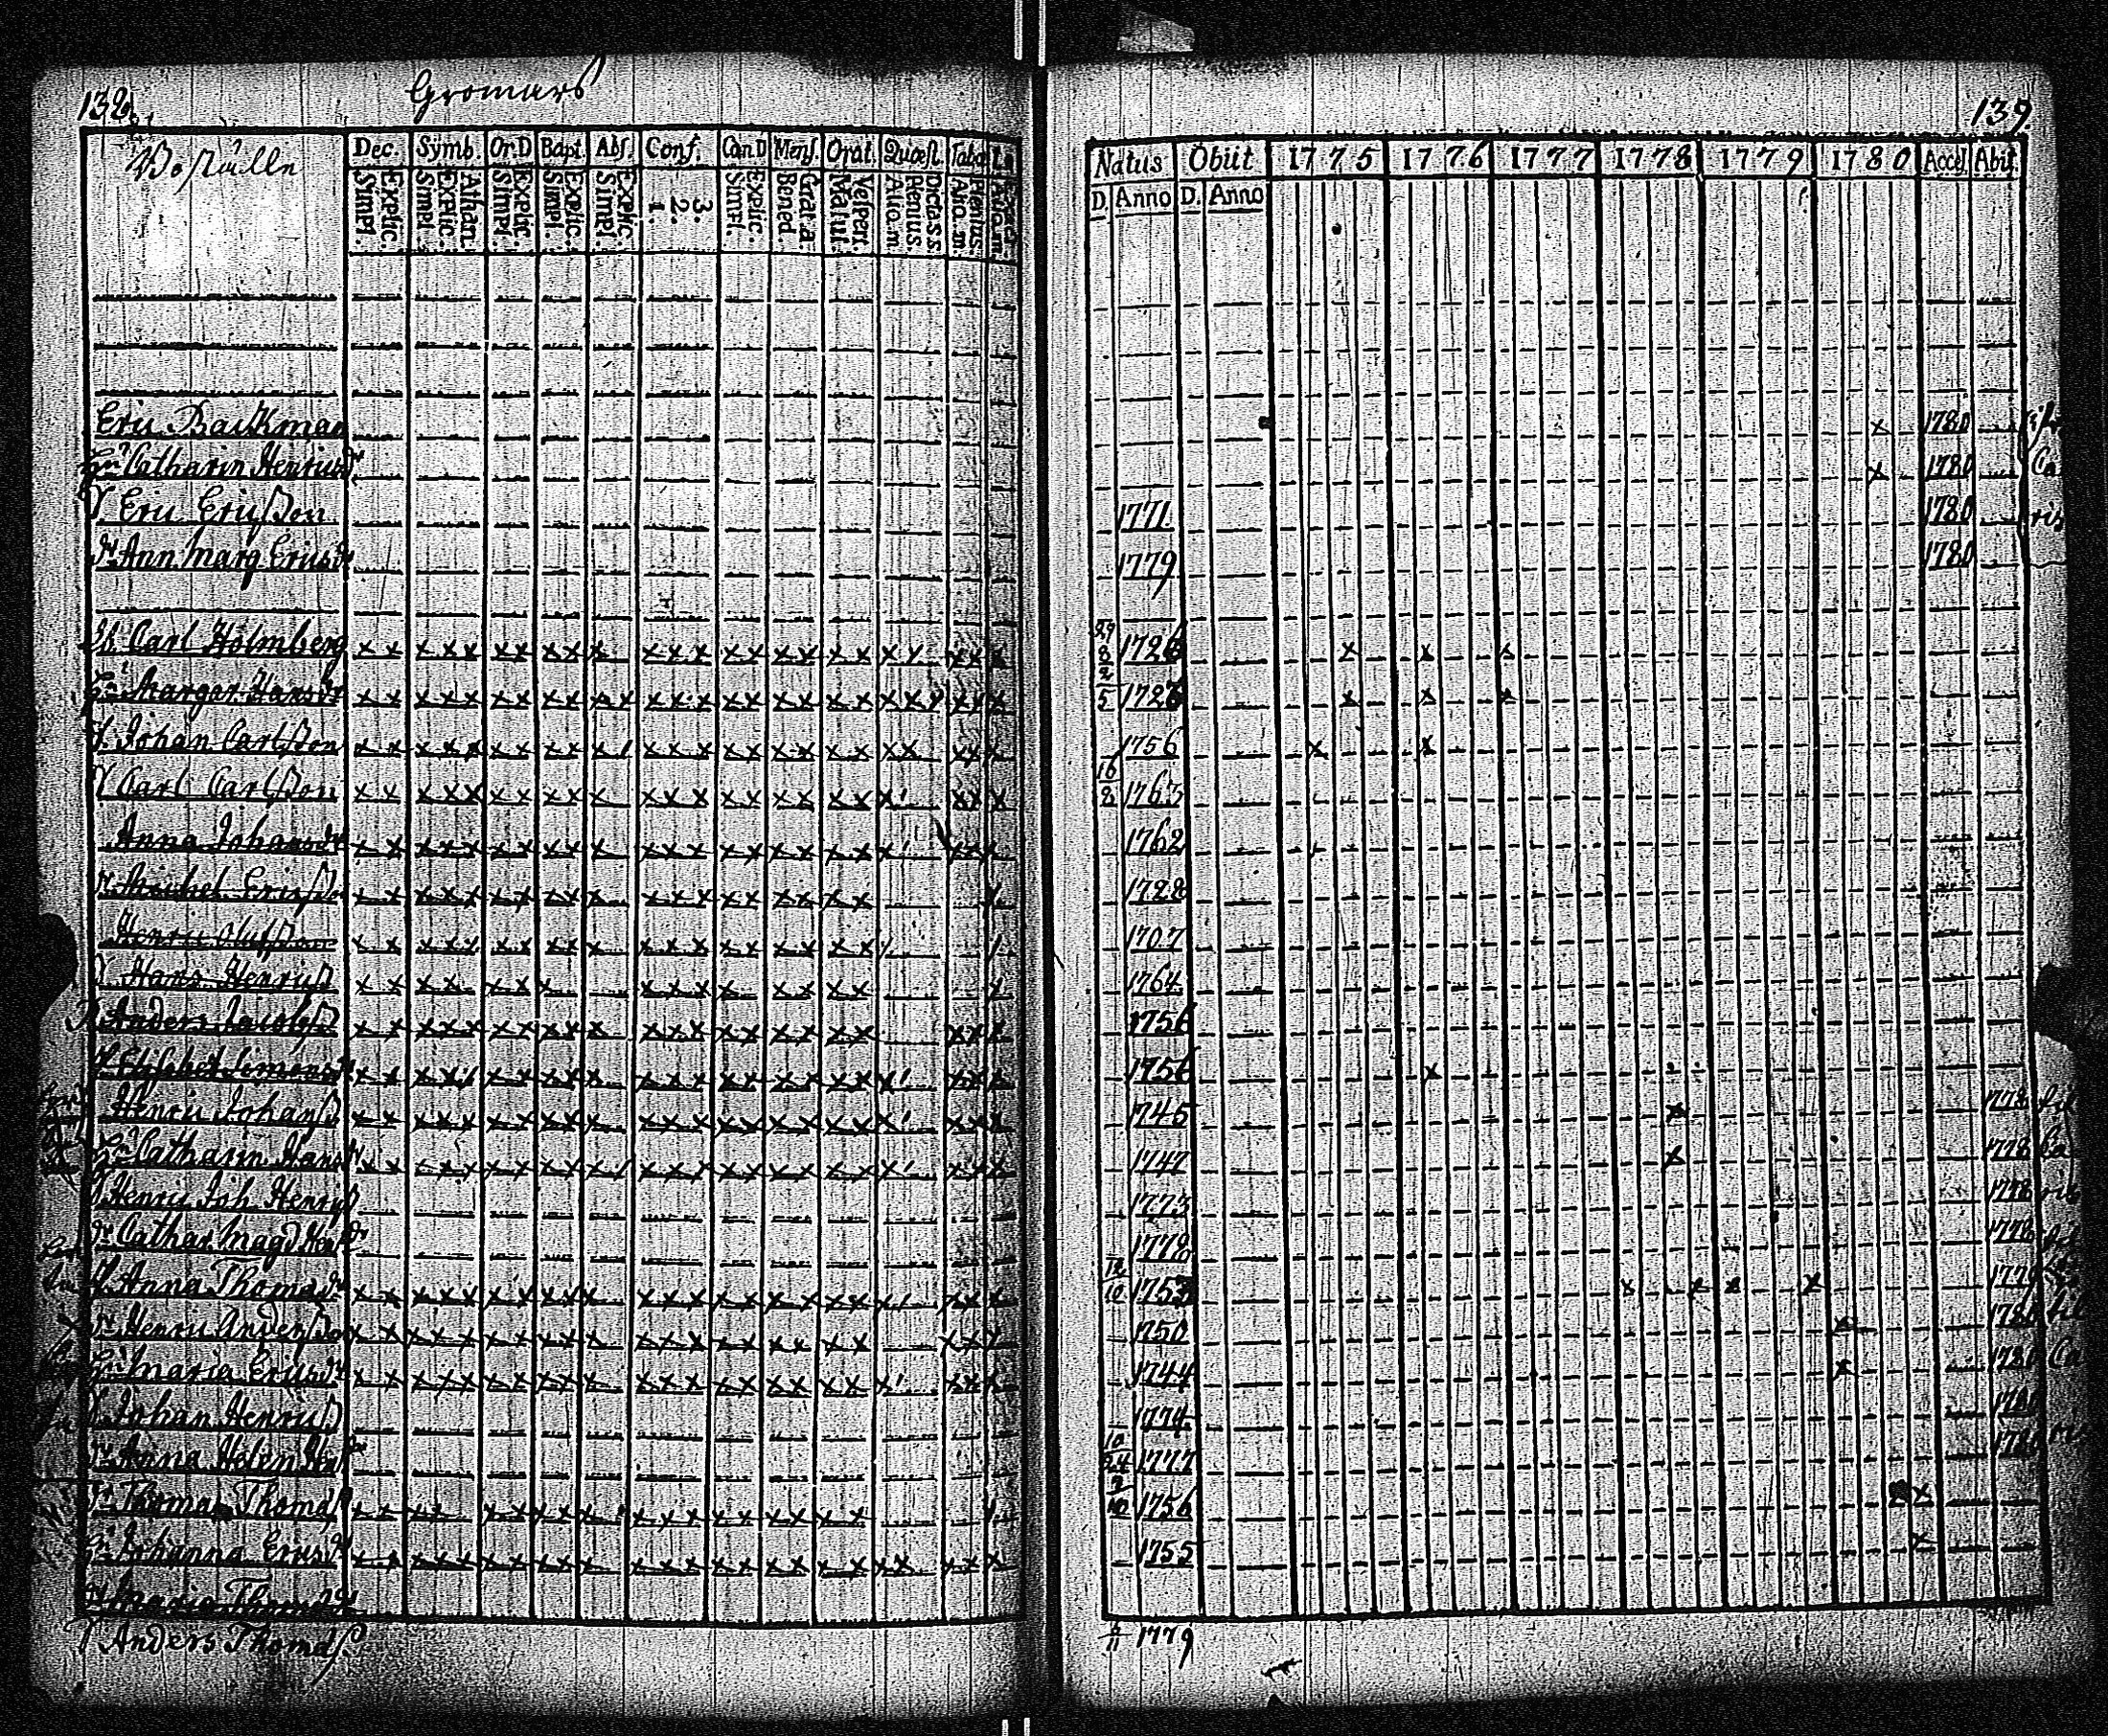 138.
Gromars
Boställe
Dec. Symb. Or.D Bapt. Abs. Conf. Cœn.D Mens. Orat. Quæst. Taba
Explic. Simpl. Athan. Explic. Simpl. Explic. Simpl. Explic. Simpl. Explic. Simpl. 3. 2. 1. Explic. Simpl. Grat.a. Bened. Vespert. Matut. Dictass. Plenius. Alio.m. Plenius. Aho.m.
Eric Backman
Hu Catharin Henricsdr
S Eric Ericsson
dr Ann Marg Ericsdr
Carl Holmberg
Hu Margar. Hansdr
S. Johan Carlsson
S Carl Carlsson
Anna Johansdr
Michel Ericsson
Henric Olufsson
Hans Henricss
Anders Jacobss
Elisabet Simonsdr
Henric Johanss
Hu Catharin Hansdr
S Henric Joh. Henricss
dr Cathar. Magd Henricsdr
Anna Thomasdr
Henric Andersson
Hu Maria Ericsdr
S Johan Henricss
dr Anna Helen Henricsdr
Thomas Thomass
Hu Johanna Ericsdr
dr Maria Thomasdr
S Anders Thomass
139.
Natus Obiit 1775 1776 1777 1778 1779 1780 Access. Abiit
D. Anno D. Anno
1780
1780
1771. 1780
1779 1780
29/8 1726
2/5 1723
1756
16/8 1763
1762
1728
1707
1764
1756
1756
1745 1778
1747 1778
1773 1778
1778 1778
12/10 1753 1779
1750 1780
1744 1780
1774 1780
10/24 1777 1780
9/10 1756
1755
6/11 1779